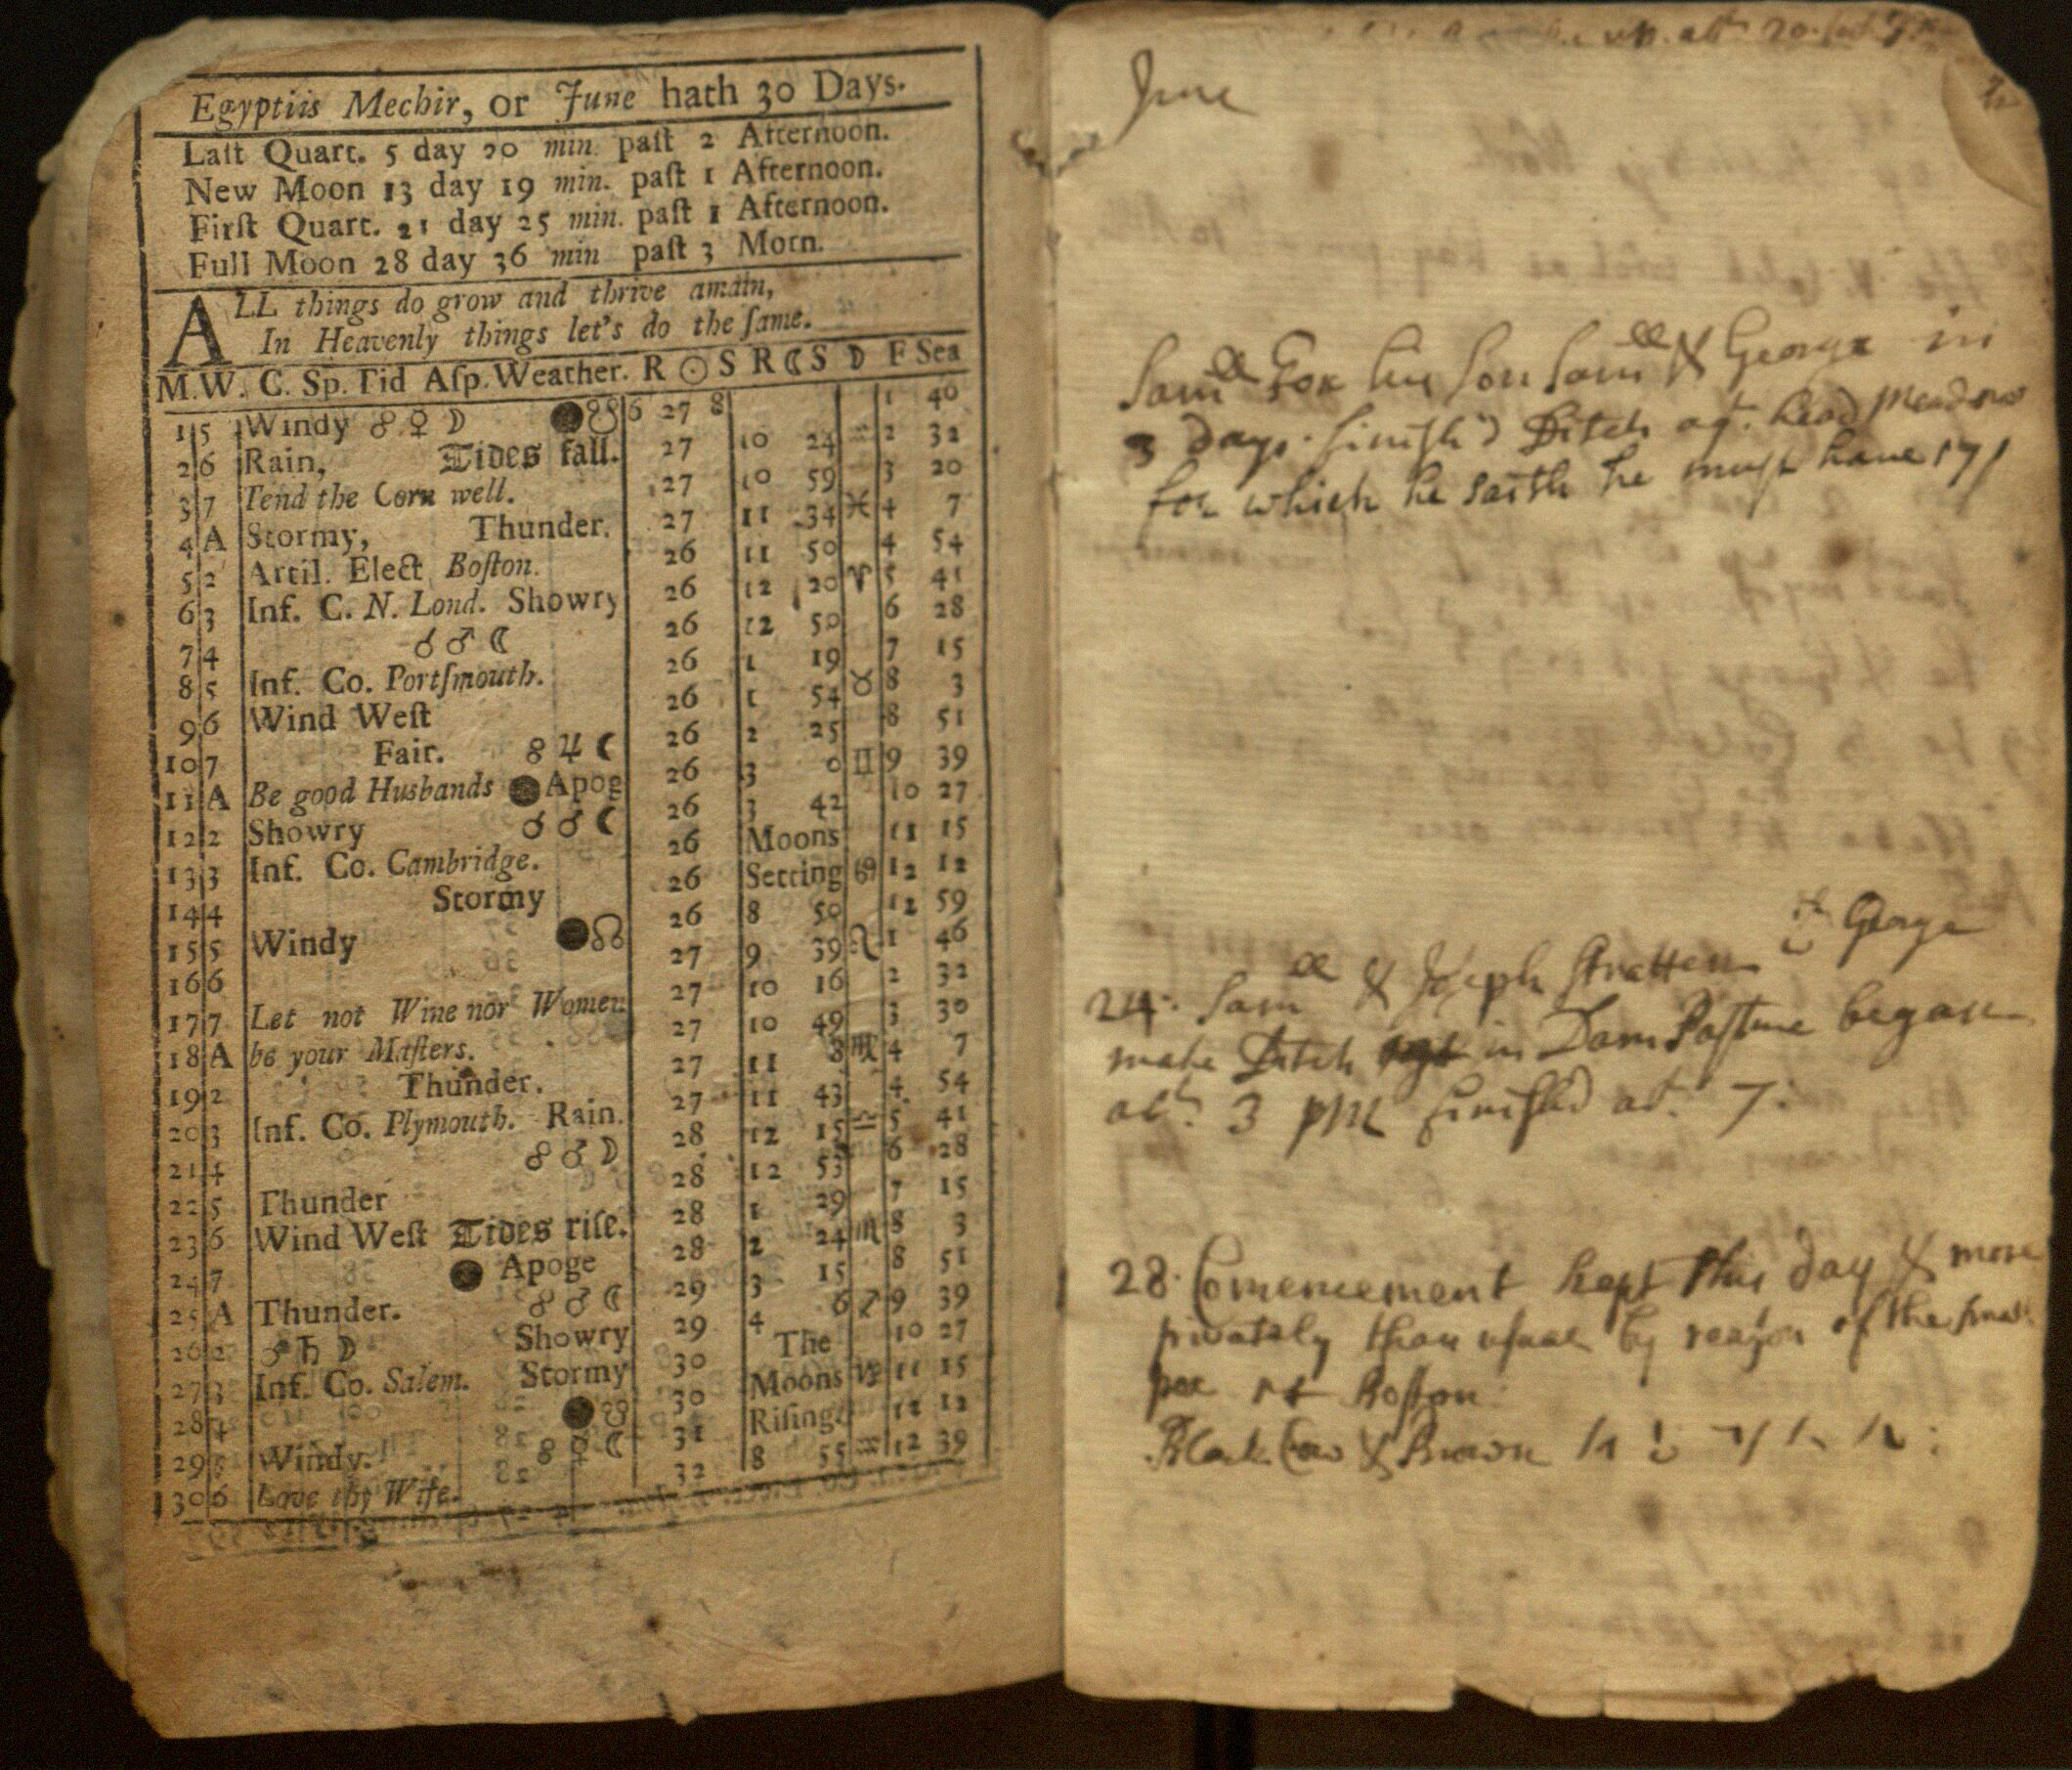 Egyptiis Mechir, or June hath 30 Days.
Laſt Quart. 5 day 20 min. paſt 2 Afternoon.
New Moon 13 day 19 min. paſt 1 Afternoon.
Firſt Quart. 21 day 25 min. paſt 1 Afternoon.
Full Moon 28 day 36 min paſt 3 Morn.
ALL things do grow and thrive amain,
In Heavenly things let's do the ſame.
M.W. C. Sp. Tid Aſp. Weather. R ☉ S R ☾ S ☽ F Sea
1 5 Windy ☍ ♀ ☽ ●☋ 6 27 8 1 40
2 6 Rain, Tides fall. 27 10 24 ♒ 2 32
3 7 Tend the Corn well. 27 10 59 3 20
4 A Stormy, Thunder. 27 11 34 ♓ 4 7
5 2 Artil. Elect Boſton. 26 11 50 4 54
6 3 Inf. C. N. Lond. Showry 26 12 20 ♈ 5 41
7 4 ☌ ♂ ☾ 26 12 50 6 28
8 5 Inf. Co. Portſmouth. 26 1 19 7 15
9 6 Wind Weſt 26 1 54 ♉ 8 3
10 7 Fair. ☍ ♃ ☾ 26 2 25 8 51
11 A Be good Husbands ● Apog 26 3 0 ♊ 9 39
12 2 Showry ☌ ♂ ☾ 26 3 42 10 27
13 3 Inf. Co. Cambridge. 26 Moons 11 15
14 4 Stormy 26 Setting ♋ 12 12
15 5 Windy ●☊ 26 8 50 12 59
16 6 27 9 39 ♌ 1 46
17 7 Let not Wine nor Women 27 10 16 2 32
18 A be your Maſters. 27 10 49 3 30
19 2 Thunder. 27 11 8 ♍ 4 7
20 3 Inf. Co. Plymouth. Rain. 27 11 43 4 54
21 4 ☍ ♂ ☽ 28 12 15 ♎ 5 41
22 5 Thunder 28 12 53 6 28
23 6 Wind Weſt Tides riſe. 28 1 29 7 15
24 7 ● Apoge 28 2 24 ♏ 8 3
25 A Thunder. ☍ ♂ ☾ 29 3 15 8 51
26 2 ♂ ♄ ☽ Showry 29 4 6 ♐ 9 39
27 3 Inf. Co. Salem. Stormy 30 The 10 27
28 4 ●☋ 30 Moons ♑ 11 15
29 5 Windy. ☍ ☿ ☾ 31 Riſing. 12 12
30 6 Love thy Wife. 32 8 55 ♒ 12 39
June
Samll Fox his Son Samll & George in
3 days finish'd Ditch at head meadow
for which he saith he must have 17/
George
24. Samll & Joseph Stratten
make Ditch in Dam Pasture began
abt 3 PM finished at 7.
28. Comencement kept this day & more
privately than usual by reason of the small
pox at Boston
Black Cow & Brown